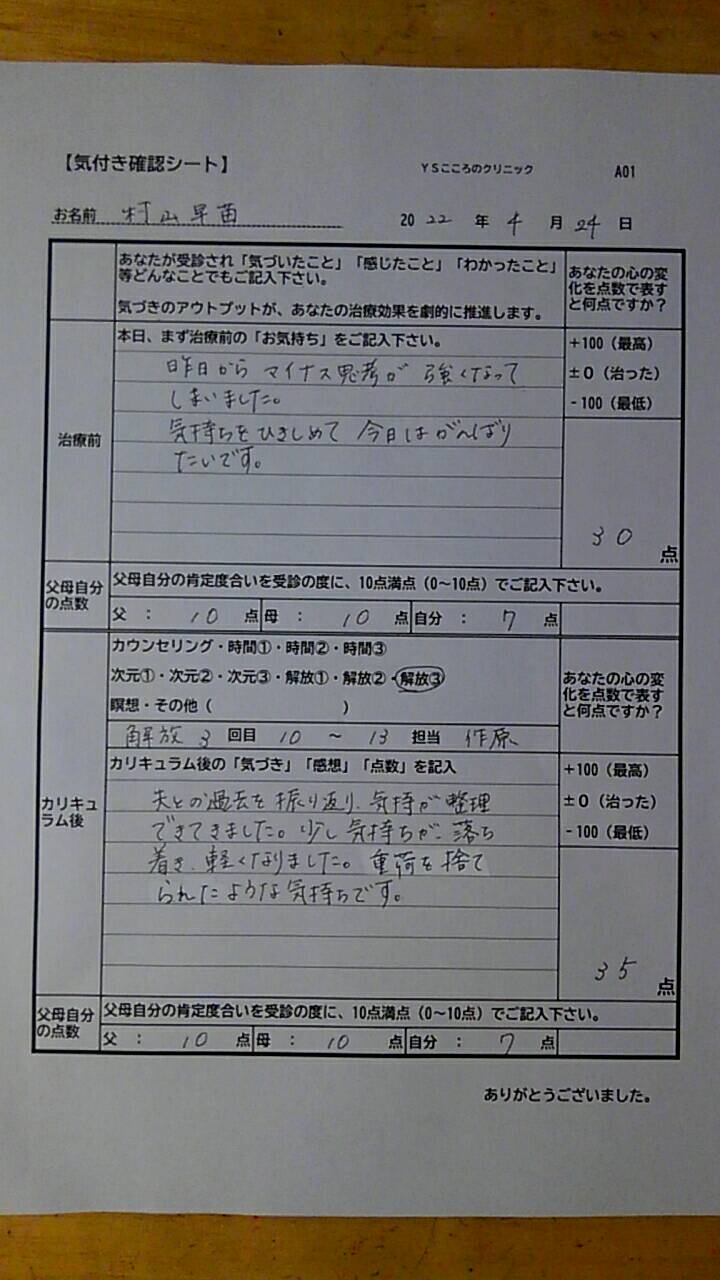 【気付き確認シート】 YSこころのクリニック A01
お名前 村山早苗 2022年4月24日
あなたが受診され「気づいたこと」「感じたこと」「わかったこと」
等どんなことでもご記入下さい。
気づきのアウトプットが、あなたの治療効果を劇的に推進します。
あなたの心の変
化を点数で表す
と何点ですか？
治療前
本日、まず治療前の「お気持ち」をご記入下さい。
昨日から マイナス思考が 強くなって
しまいました。
気持ちをひきしめて 今日はがんばり
たいです。
+100（最高）
±0（治った）
-100（最低）
30点
父母自分
の点数
父母自分の肯定度合いを受診の度に、10点満点（0～10点）でご記入下さい。
父： 10点 母： 10点 自分： 7点
カリキュ
ラム後
カウンセリング・時間①・時間②・時間③
次元①・次元②・次元③・解放①・解放②・解放③
瞑想・その他（ ）
解放3回目 10～13 担当 作原
あなたの心の変
化を点数で表す
と何点ですか？
カリキュラム後の「気づき」「感想」「点数」を記入
夫との過去を振り返り、気持が整理
できてきました。少し気持ちが、落ち
着き、軽くなりました。重荷を捨て
られたような気持ちです。
+100（最高）
±0（治った）
-100（最低）
35点
父母自分
の点数
父母自分の肯定度合いを受診の度に、10点満点（0～10点）でご記入下さい。
父： 10点 母： 10点 自分： 7点
ありがとうございました。